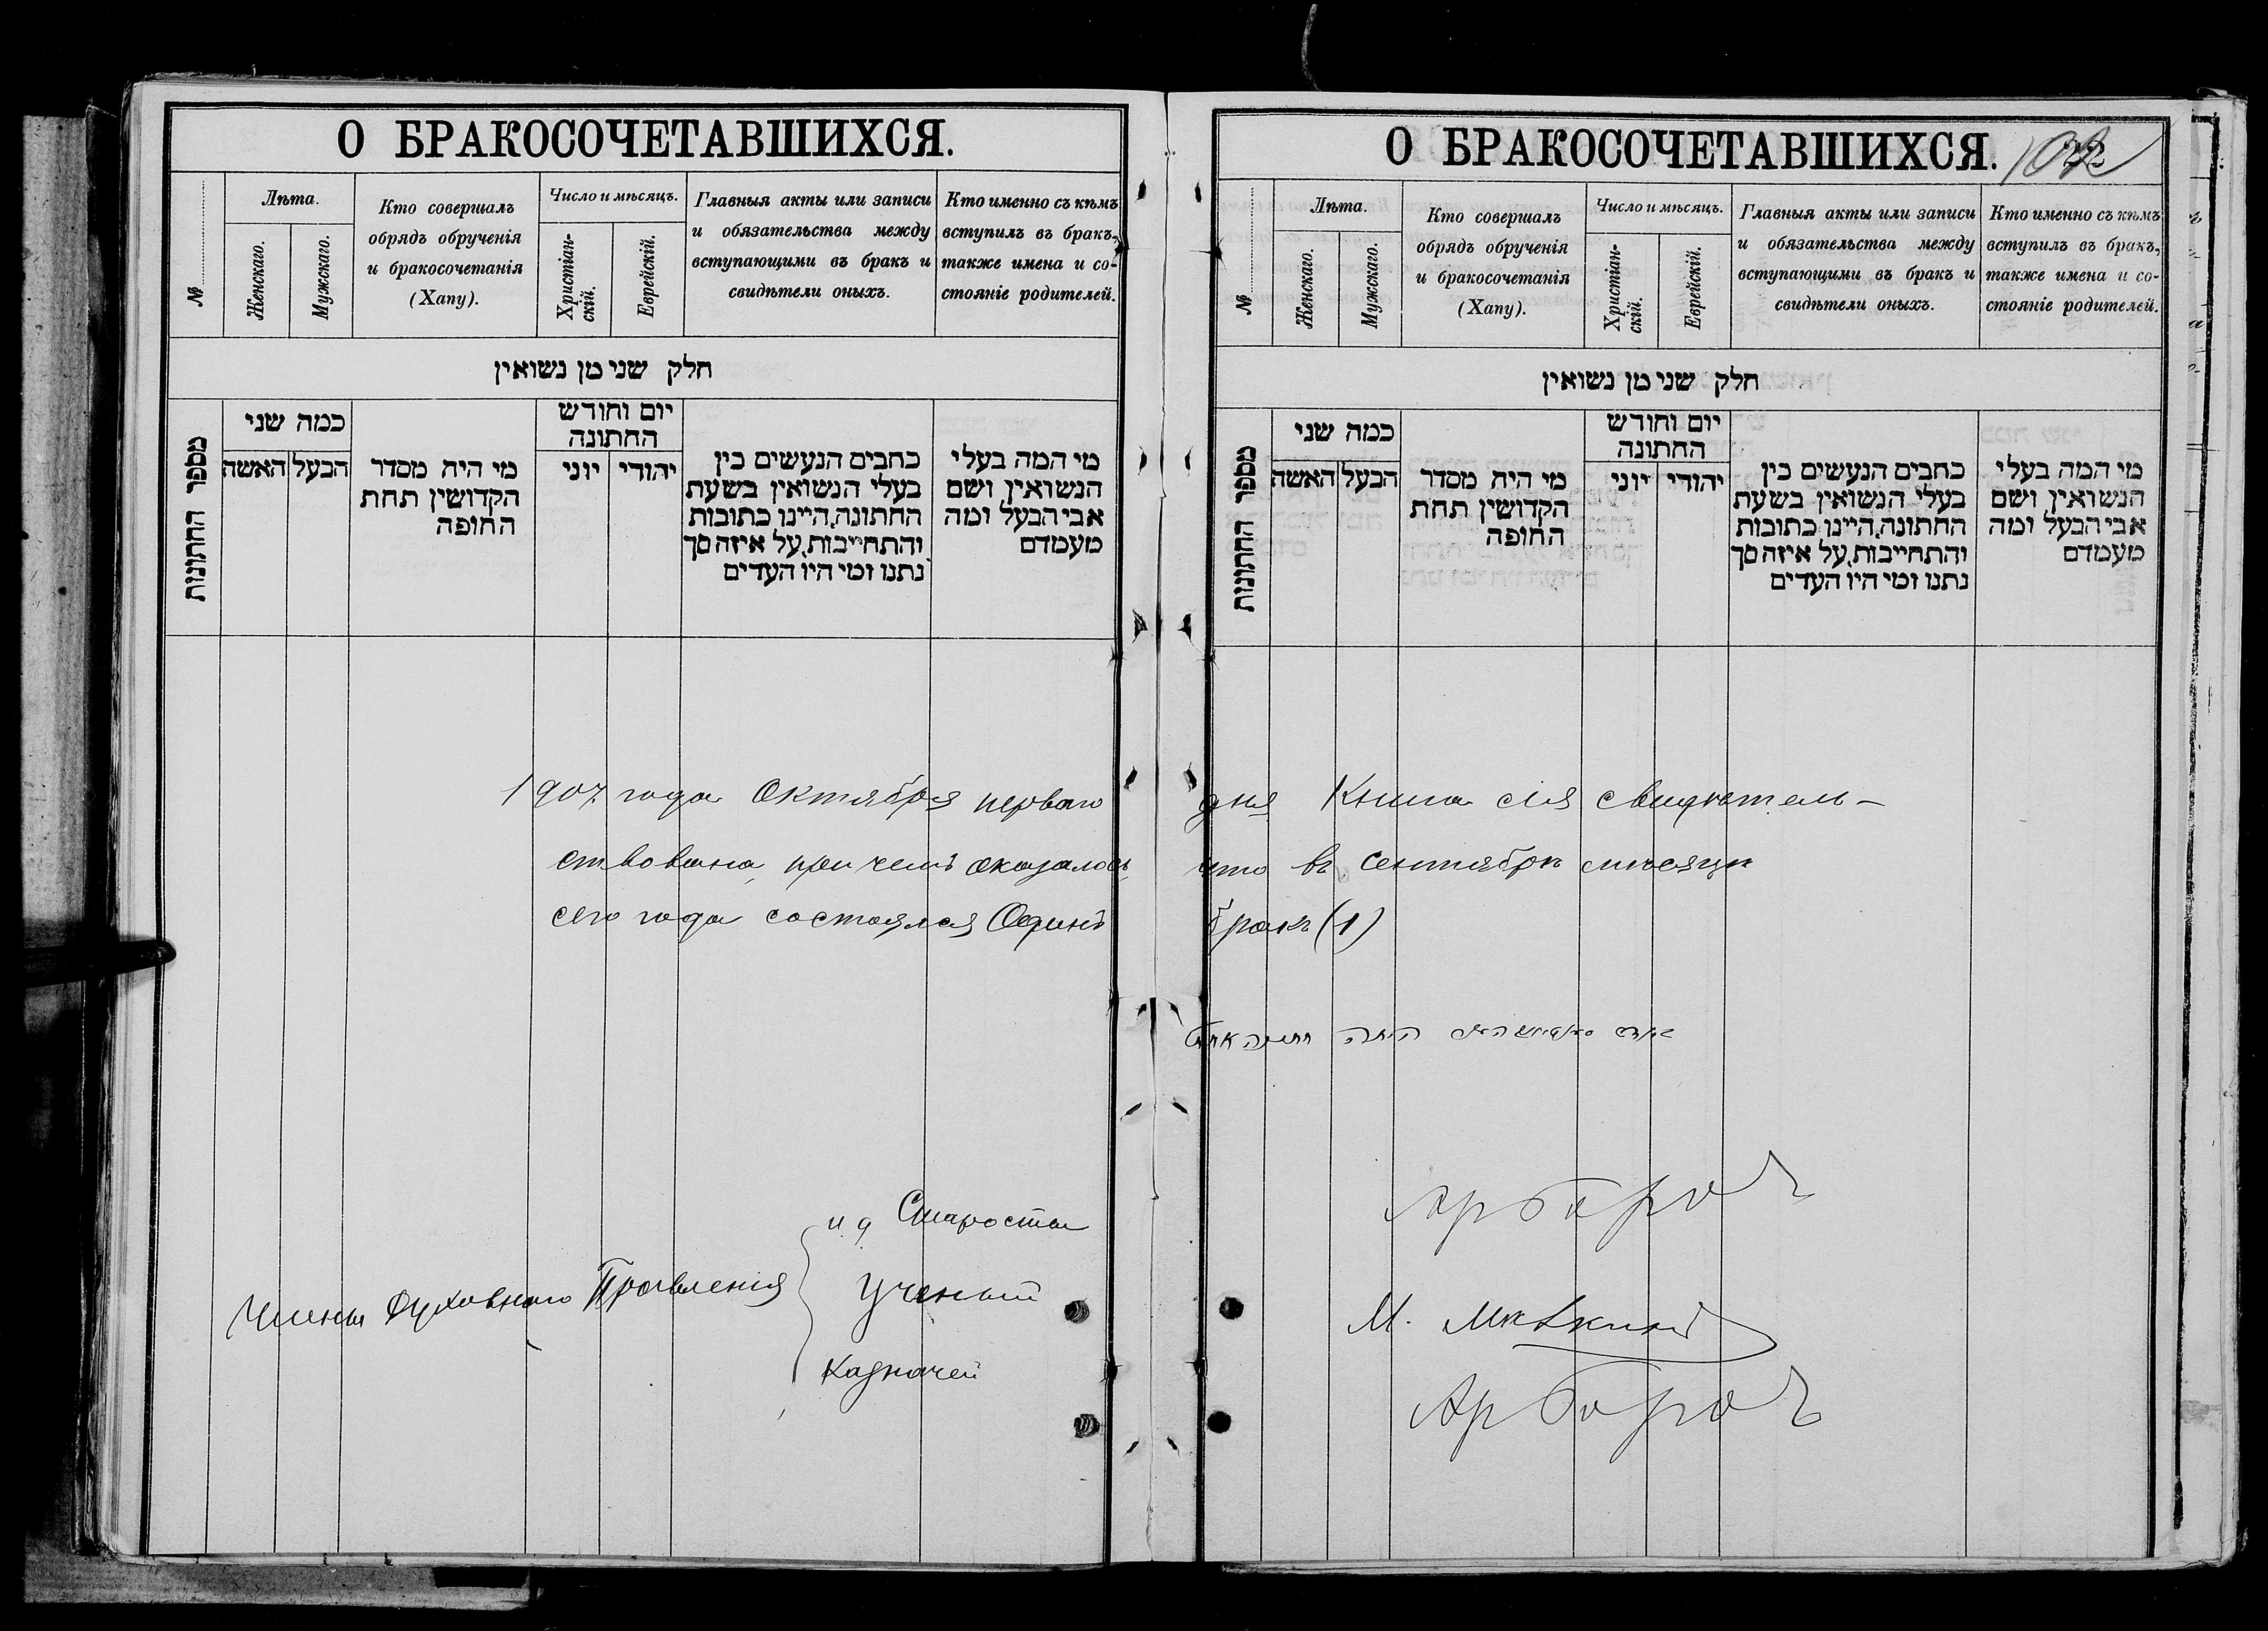 О БРАКОСОЧЕТАВШИХСЯ.
№
Лѣта.
Женскаго.
Мужскаго.
Кто совершалъ
обрядъ обрученія
и бракосочетанія
(Хапу).
Число и мѣсяцъ.
Христіан-
скій.
Еврейскій.
Главныя акты или записи
и обязательства между
вступающими въ бракъ и
свидѣтели оныхъ.
Кто именно съ кѣмъ
вступилъ въ бракъ,
также имена и со-
стояніе родителей.
חלק שני מן נשואין
מספר החתונות
כמה שני
האשה
הבעל
מי היה מסדר
הקדושין תחת
החופה
יום וחודש
החתונה
יוני
יהודי
כתבים הנעשים בין
בעלי הנשואין בשעת
החתונה,היינו כתובות
והתחייבות,על איזה סך
נתנו ומי היו העדים
מי המה בעלי
הנשואין ושם
אבי הבעל ומה
מעמדם
О БРАКОСОЧЕТАВШИХСЯ.
№
Лѣта.
Женскаго.
Мужскаго.
Кто совершалъ
обрядъ обрученія
и бракосочетанія
(Хапу).
Число и мѣсяцъ.
Христіан-
скій.
Еврейскій.
Главныя акты или записи
и обязательства между
вступающими въ бракъ и
свидѣтели оныхъ.
Кто именно съ кѣмъ
вступилъ въ бракъ,
также имена и со-
стояніе родителей.
חלק שני מן נשואין
מספר החתונות
כמה שני
האשה
הבעל
מי היה מסדר
הקדושין תחת
החופה
יום וחודש
החתונה
יוני
יהודי
כתבים הנעשים בין
בעלי הנשואין בשעת
החתונה,היינו כתובות
והתחייבות,על איזה סך
נתנו ומי היו העדים
מי המה בעלי
הנשואין ושם
אבי הבעל ומה
מעמדם
1907 года Октября перваго дня Книга сія свидѣтель-
ствована, при чемъ оказалось, что въ Сентябрѣ мѣсяцѣ
сего года состоялся Одинъ бракъ (1)
היתה חתונה אחת
Члены Духовнаго Правленія
и. д. Староста
Ученый
М.
Казначей